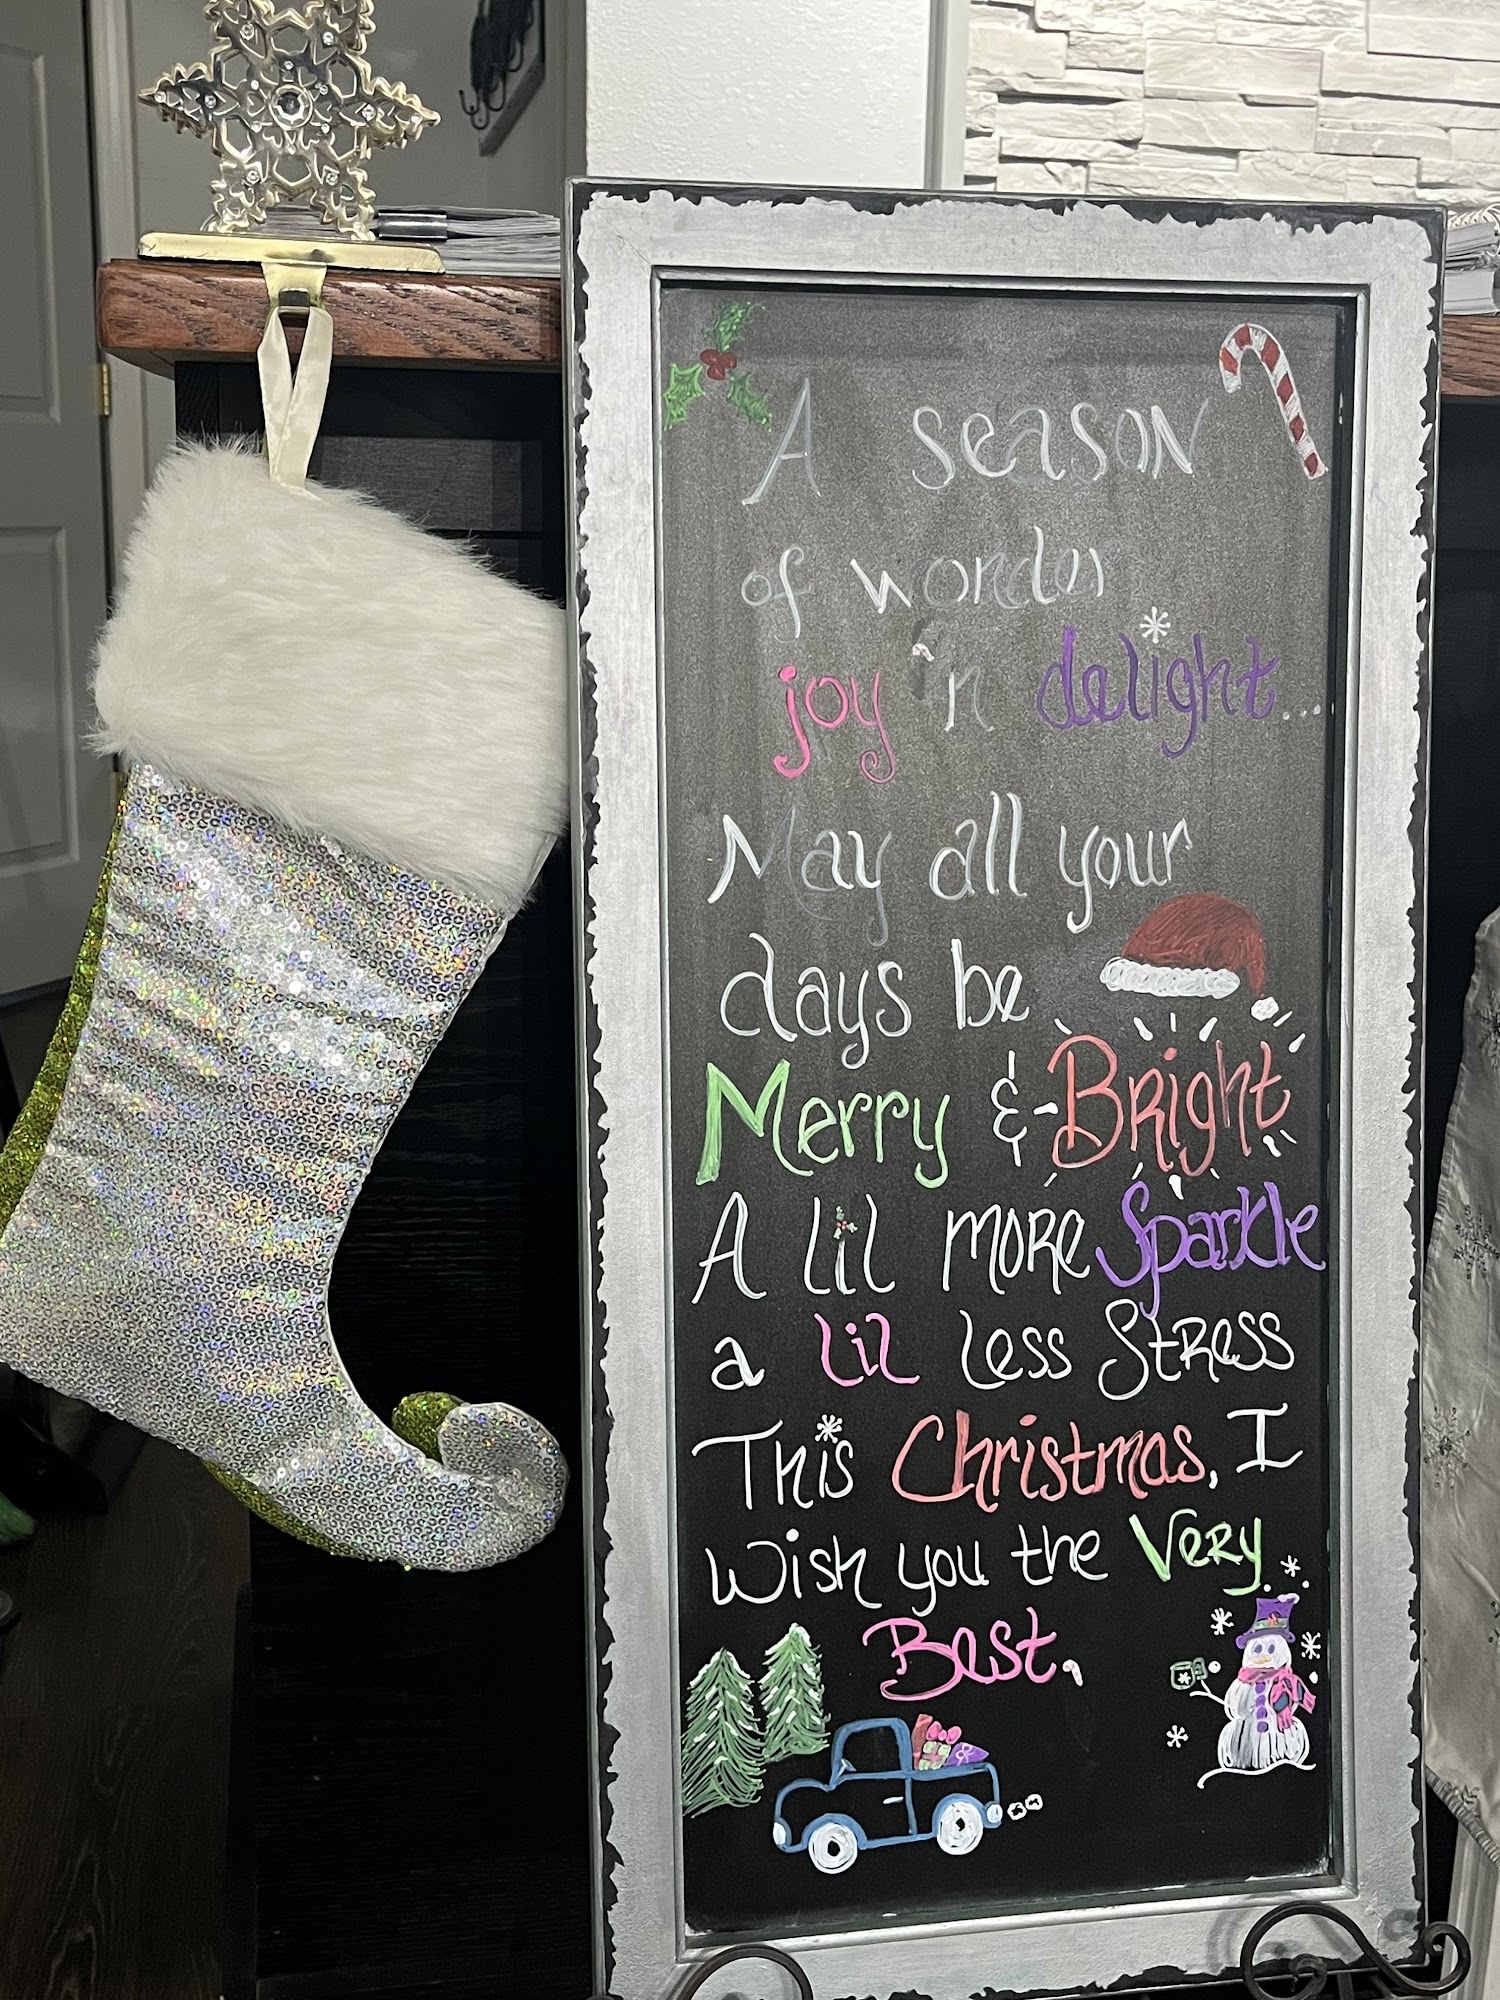 A season
of wonder
joy 'n delight...
May all your
days be
Merry & Bright
A lil more Sparkle
a lil less Stress
This Christmas, I
Wish you the Very
Best.